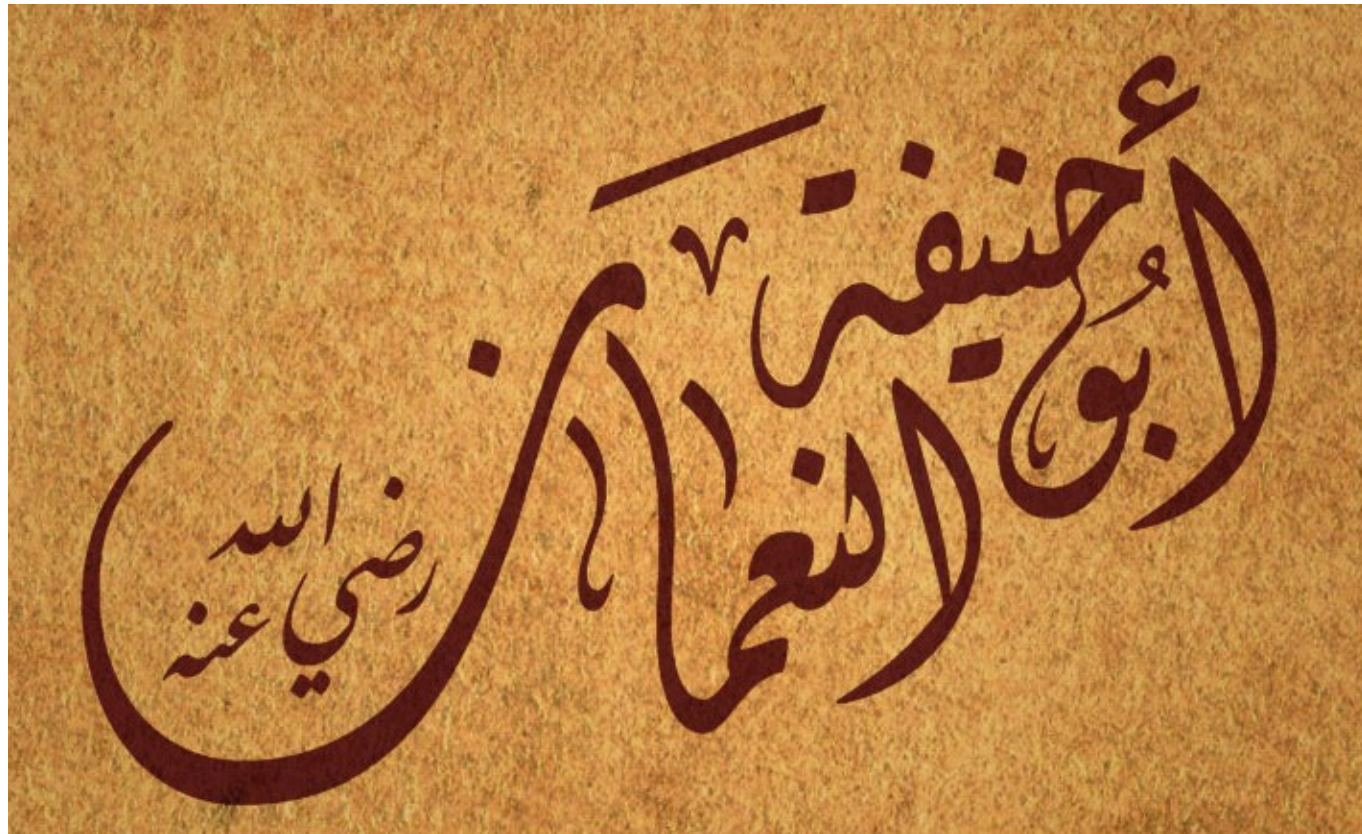 أبُو حنيفة
النعمان
رضي الله عنه